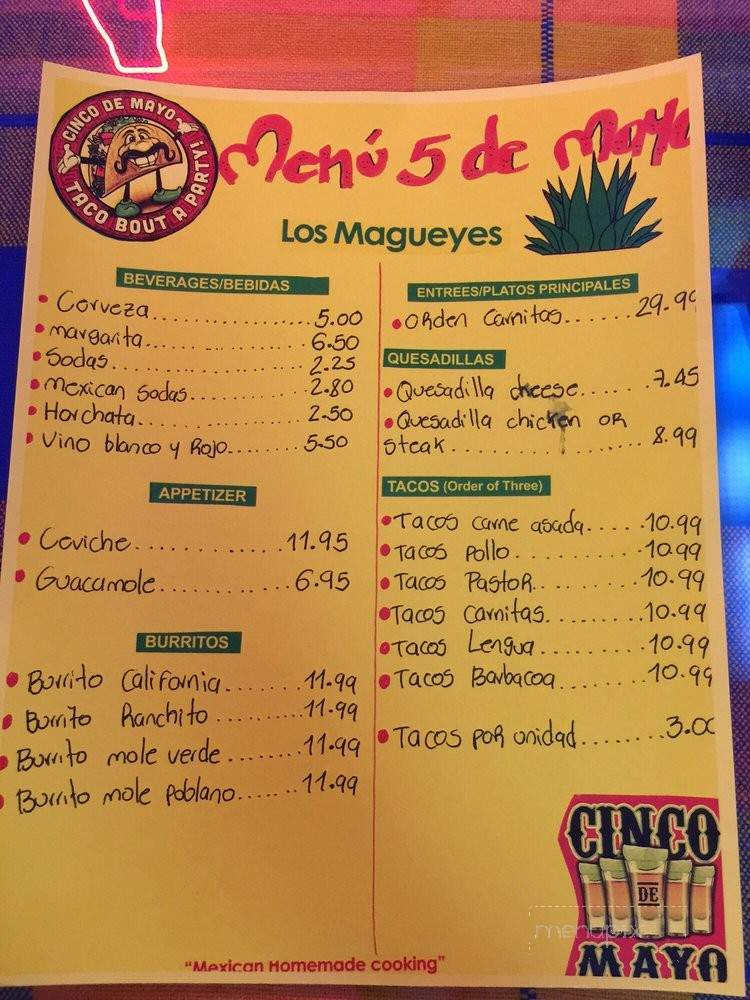 CINCO DE MAYO
TACO BOUT A PARTY!
Menú 5 de Mayo
Los Magueyes
BEVERAGES/BEBIDAS
Corveza.................5.00
margarita................6.50
Sodas....................2.25
Mexican Sodas............2.80
Horchata.................2.50
Vino blanco y Rojo.......5.50
APPETIZER
Coviche..................11.95
Guacamole................6.95
BURRITOS
Burrito California.......11.99
Burrito Ranchito.........11.99
Burrito mole verde.......11.99
Burrito mole poblano.....11.99
ENTREES/PLATOS PRINCIPALES
ORden Carnitas......29.99
QUESADILLAS
Quesadilla cheese.......7.45
Quesadilla chicken OR
Steak...................8.99
TACOS (Order of Three)
Tacos carne asada......10.99
Tacos Pollo............10.99
Tacos Pastor...........10.99
Tacos Carnitas.........10.99
Tacos Lengua...........10.99
Tacos Barbacoa.........10.99
Tacos por unidad.......3.00
CINCO
DE
MAYO
"Mexican Homemade cooking"